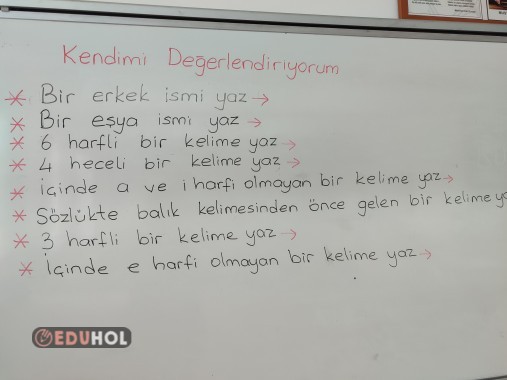 Kendimi Değerlendiriyorum
* Bir erkek ismi yaz →
* Bir eşya ismi yaz →
* 6 harfli bir kelime yaz →
* 4 heceli bir kelime yaz →
* İçinde a ve i harfi olmayan bir kelime yaz →
* Sözlükte balık kelimesinden önce gelen bir kelime ya
* 3 harfli bir kelime yaz →
* İçinde e harfi olmayan bir kelime yaz →
EDUHOL